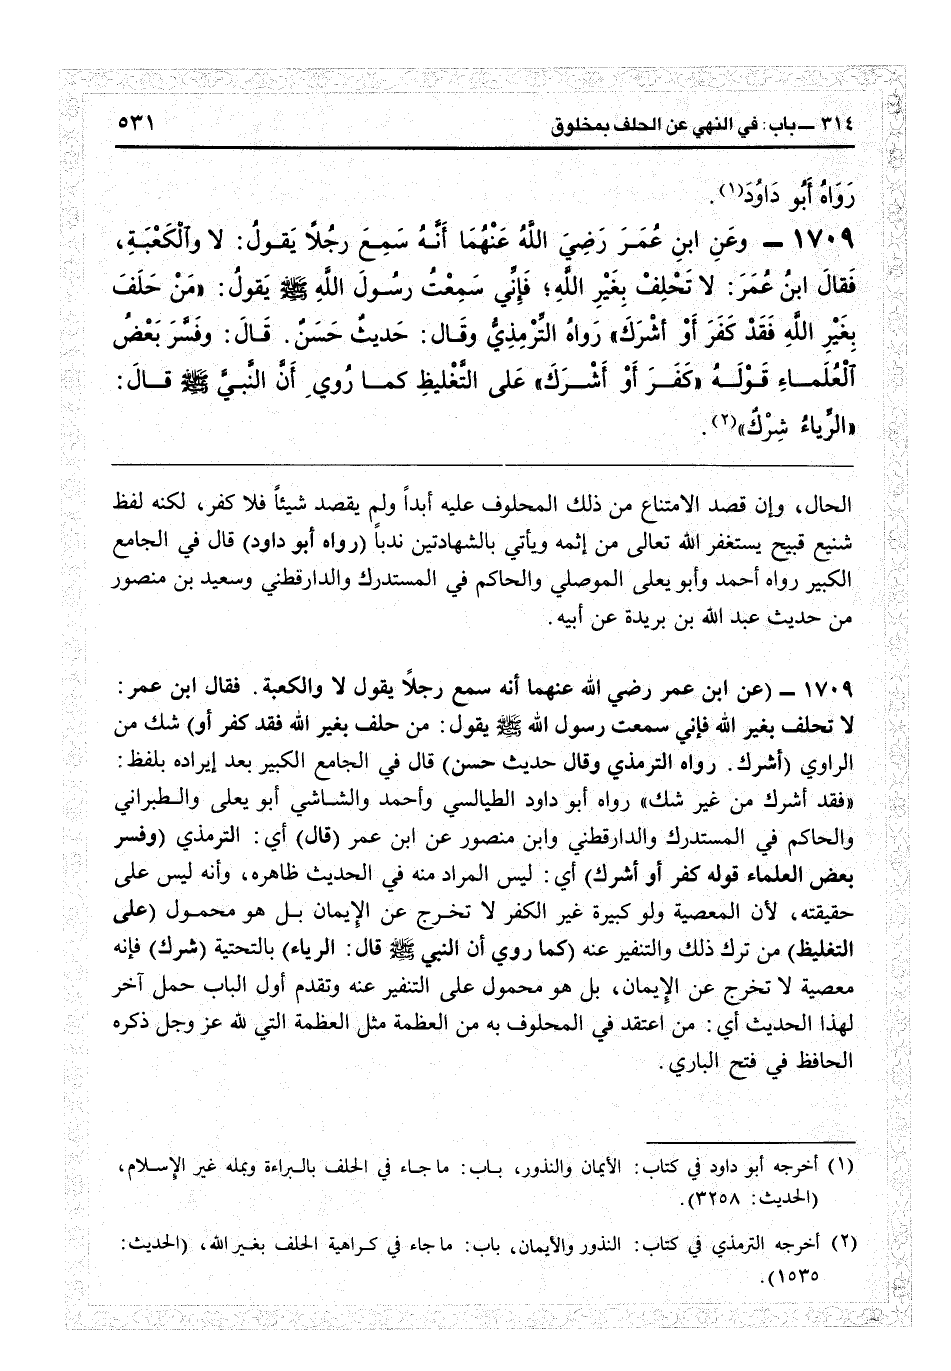 ٣١٤ ــ باب: في النهي عن الحلف بمخلوق ٥٣١
رَوَاهُ أَبُو دَاوُدَ(١).
١٧٠٩ ــ وعَنِ ابنِ عُمَرَ رَضِيَ اللَّهُ عَنْهُمَا أَنَّهُ سَمِعَ رجُلاً يَقولُ: لا والْكَعْبَةِ،
فَقالَ ابنُ عُمَرَ: لا تَحْلِفْ بِغَيْرِ اللَّهِ؛ فَإِنِّي سَمعْتُ رسُولَ اللَّهِ ﷺ يَقولُ: «مَنْ حَلَفَ
بِغَيْرِ اللَّهِ فَقَدْ كَفَرَ أَوْ أَشْرَكَ» رَواهُ التِّرْمِذِيُّ وقَال: حَديثٌ حَسَنٌ. قَالَ: وفَسَّرَ بَعْضُ
الْعُلَمـاءِ قَـوْلَـهُ «كَفَـرَ أَوْ أَشْـرَكَ» عَلى التَّغْليظِ كمـا رُوي أَنَّ النَّبـيَّ ﷺ قـالَ:
«الرِّياءُ شِرْكٌ»(٢).
الحال، وإن قصد الامتناع من ذلك المحلوف عليه أبداً ولم يقصد شيئاً فلا كفر، لكنه لفظ
شنيع قبيح يستغفر الله تعالى من إثمه ويأتي بالشهادتين ندباً (رواه أبو داود) قال في الجامع
الكبير رواه أحمد وأبو يعلى الموصلي والحاكم في المستدرك والدارقطني وسعيد بن منصور
من حديث عبد الله بن بريدة عن أبيه.
١٧٠٩ ــ (عن ابن عمر رضي الله عنهما أنه سمع رجلاً يقول لا والكعبة. فقال ابن عمر:
لا تحلف بغير الله فإني سمعت رسول الله ﷺ يقول: من حلف بغير الله فقد كفر أو) شك من
الراوي (أشرك. رواه الترمذي وقال حديث حسن) قال في الجامع الكبير بعد إيراده بلفظ:
«فقد أشرك من غير شك» رواه أبو داود الطيالسي وأحمد والشاشي أبو يعلى والطبراني
والحاكم في المستدرك والدارقطني وابن منصور عن ابن عمر (قال) أي: الترمذي (وفسر
بعض العلماء قوله كفر أو أشرك) أي: ليس المراد منه في الحديث ظاهره، وأنه ليس على
حقيقته، لأن المعصية ولو كبيرة غير الكفر لا تخرج عن الإيمان بل هو محمول (على
التغليظ) من ترك ذلك والتنفير عنه (كما روي أن النبي ﷺ قال: الرياء) بالتحتية (شرك) فإنه
معصية لا تخرج عن الإيمان، بل هو محمول على التنفير عنه وتقدم أول الباب حمل آخر
لهذا الحديث أي: من اعتقد في المحلوف به من العظمة مثل العظمة التي لله عز وجل ذكره
الحافظ في فتح الباري.
(١) أخرجه أبو داود في كتاب: الأيمان والنذور، بـاب: ما جاء في الحلف بالبراءة وبملة غير الإسلام،
(الحديث: ٣٢٥٨).
(٢) أخرجه الترمذي في كتاب: النذور والأيمان، باب: ما جاء في كراهية الحلف بغير الله، (الحديث:
١٥٣٥).